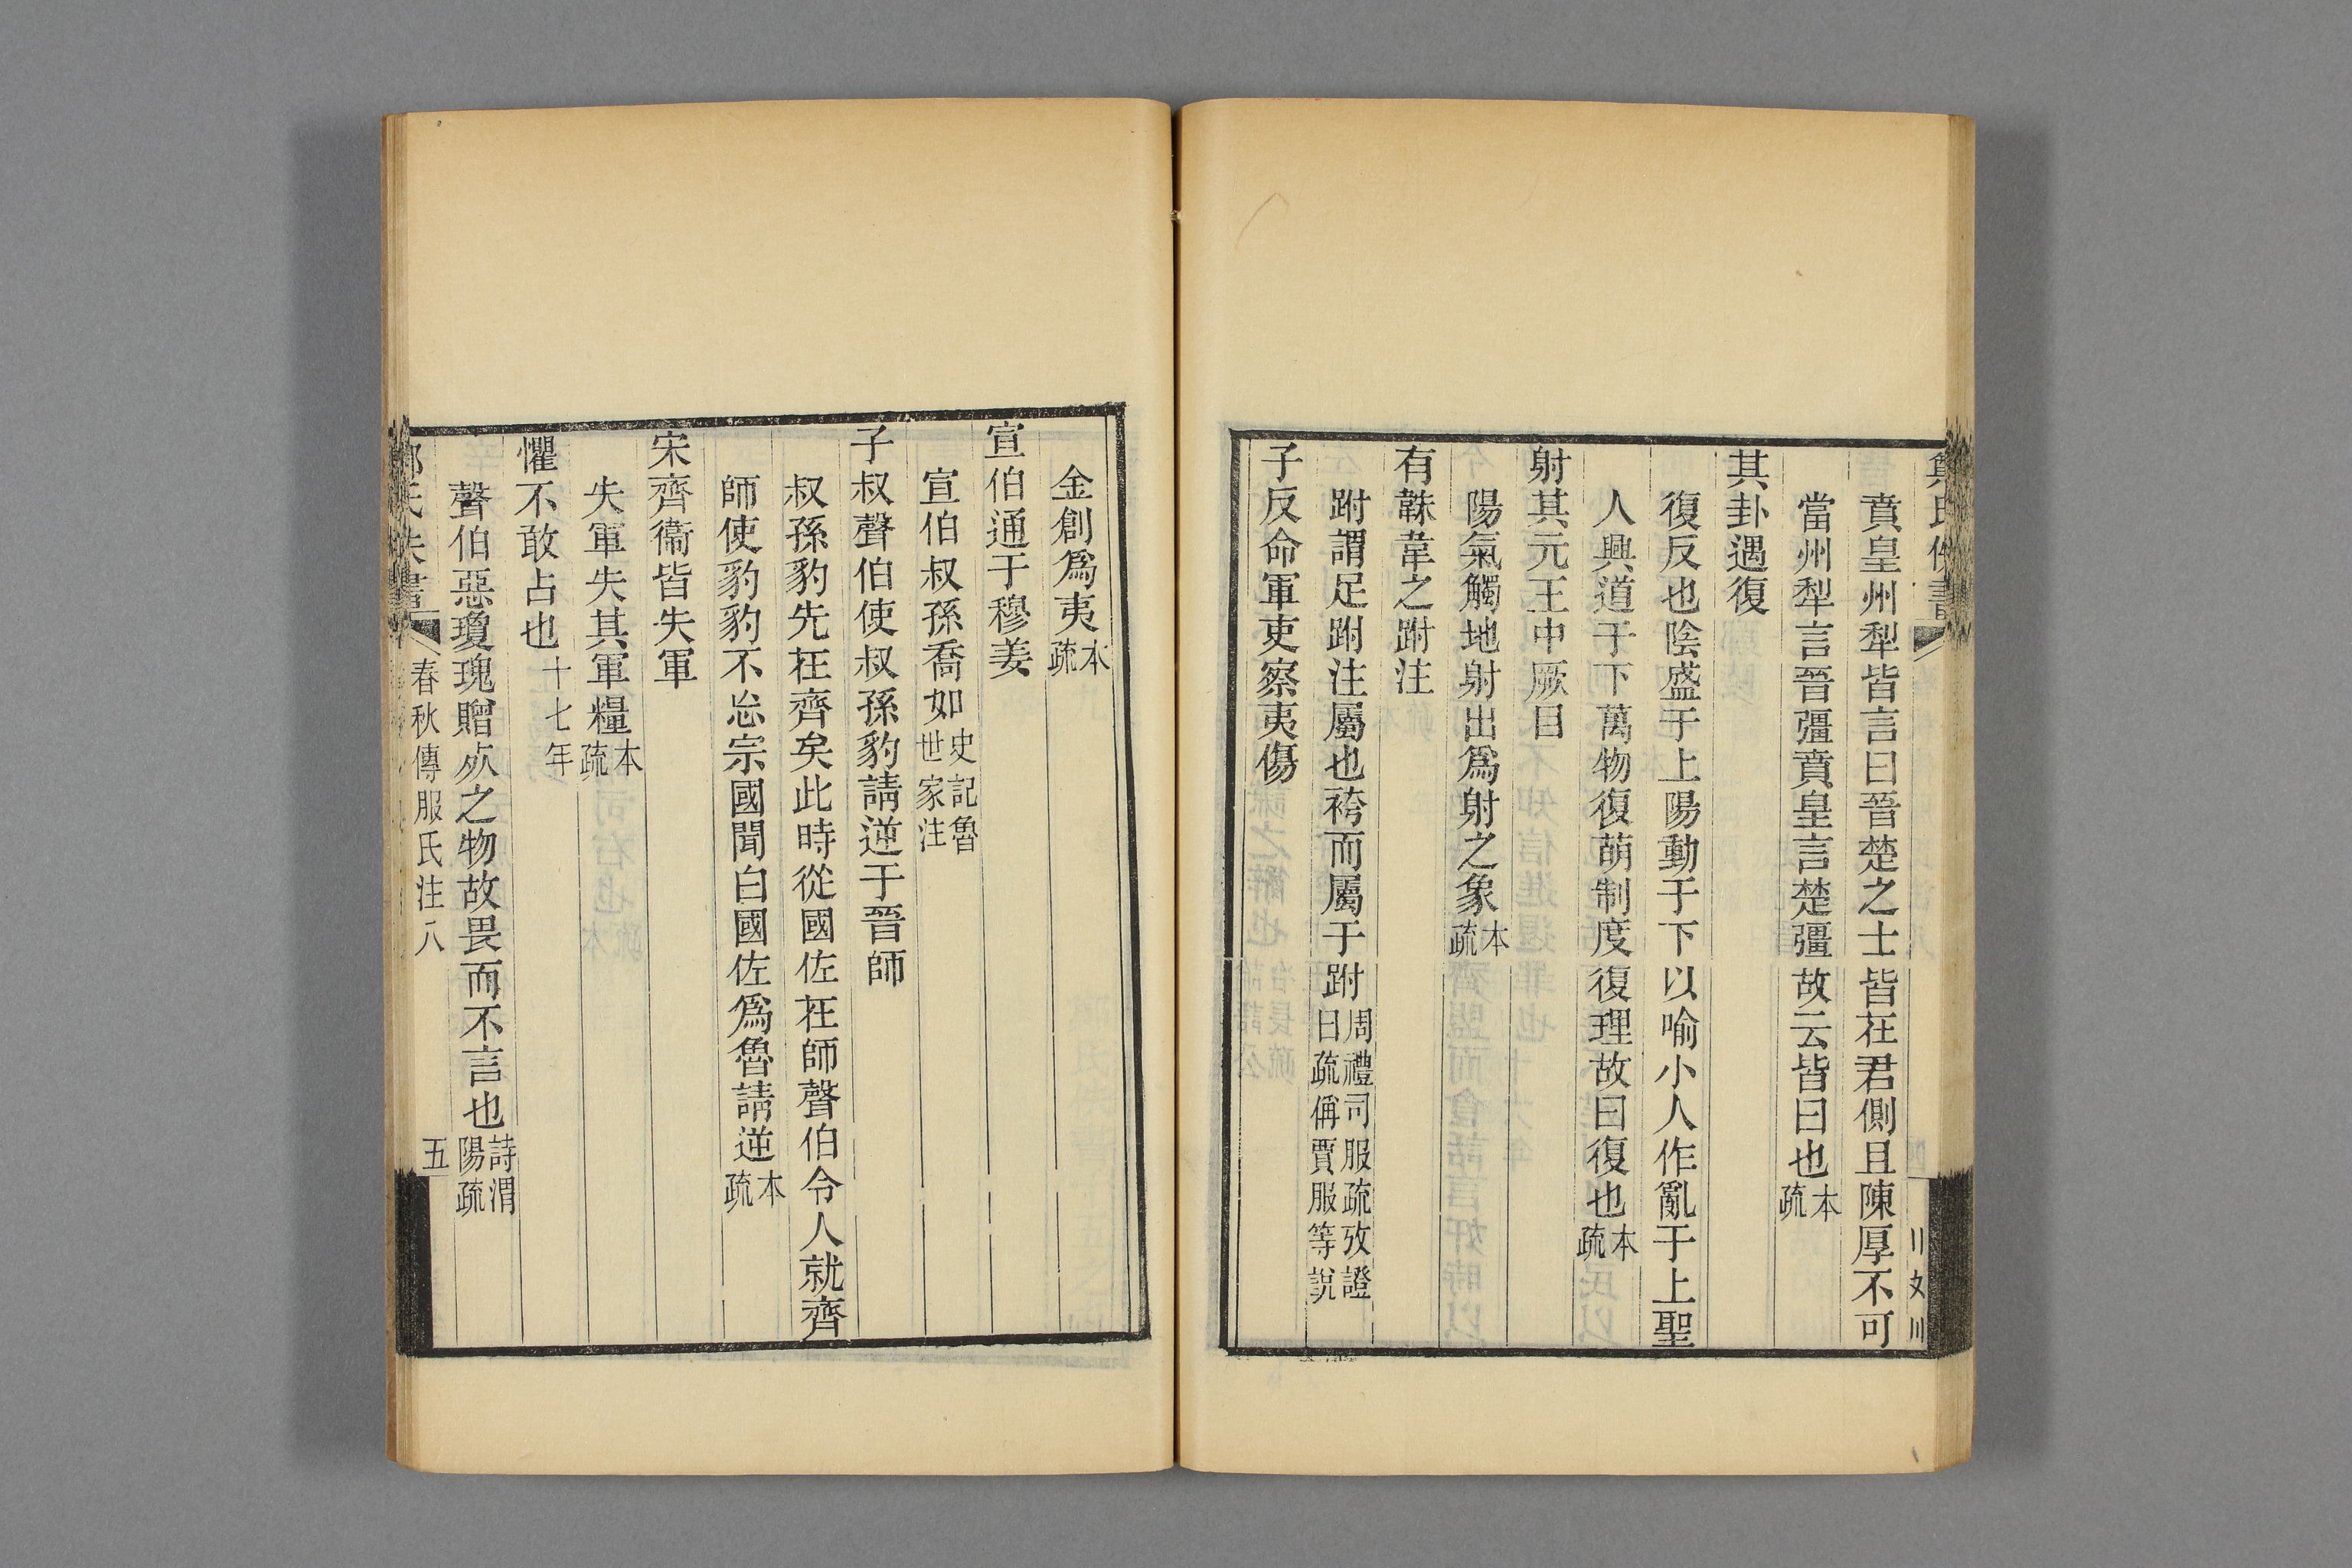 賁皇州犁皆言曰晉楚之士皆在君側且陳厚不可
當州犁言晉彊賁皇言楚彊故云皆曰也本疏
其卦遇復
復反也陰盛于上陽動于下以喻小人作亂于上聖
人興道于下萬物復萌制度復理故曰復也本疏
射其元王中厥目
陽氣觸地射出爲射之象本疏
有韎韋之跗注
跗謂足跗注屬也袴而屬于跗周禮司服疏攷證曰疏偁賈服等說
子反命軍吏察夷傷
金創爲夷本疏
宣伯通于穆姜
宣伯叔孫喬如史記魯世家注
子叔聲伯使叔孫豹請逆于晉師
叔孫豹先在齊矣此時從國佐在師聲伯令人就齊
師使豹豹不忘宗國聞白國佐爲魯請逆本疏
宋齊衞皆失軍
失軍失其軍糧本疏
懼不敢占也十七年
聲伯惡瓊瑰贈死之物故畏而不言也詩渭陽疏
春秋傳服氏注八
五